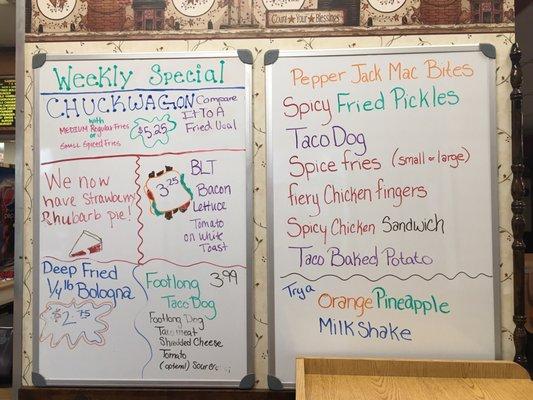 Count Your Blessings
Weekly Special
CHUCKWAGON
with
MEDIUM Regular Fries
or
SMALL Spiced Fries
$5.25
Compare
It To A
Fried Veal
We now
have Strawberry
Rhubarb pie!
3.25
BLT
Bacon
Lettuce
Tomato
on White
Toast
Deep Fried
1/4 lb Bologna
$2.75
Footlong 3.99
Taco Dog
Footlong Dog
Taco meat
Shredded Cheese
Tomato
(optional) Sour
Pepper Jack Mac Bites
Spicy Fried Pickles
Taco Dog
Spice fries (small or large)
fiery Chicken fingers
Spicy Chicken Sandwich
Taco Baked Potato
Try a
Orange Pineapple
Milkshake